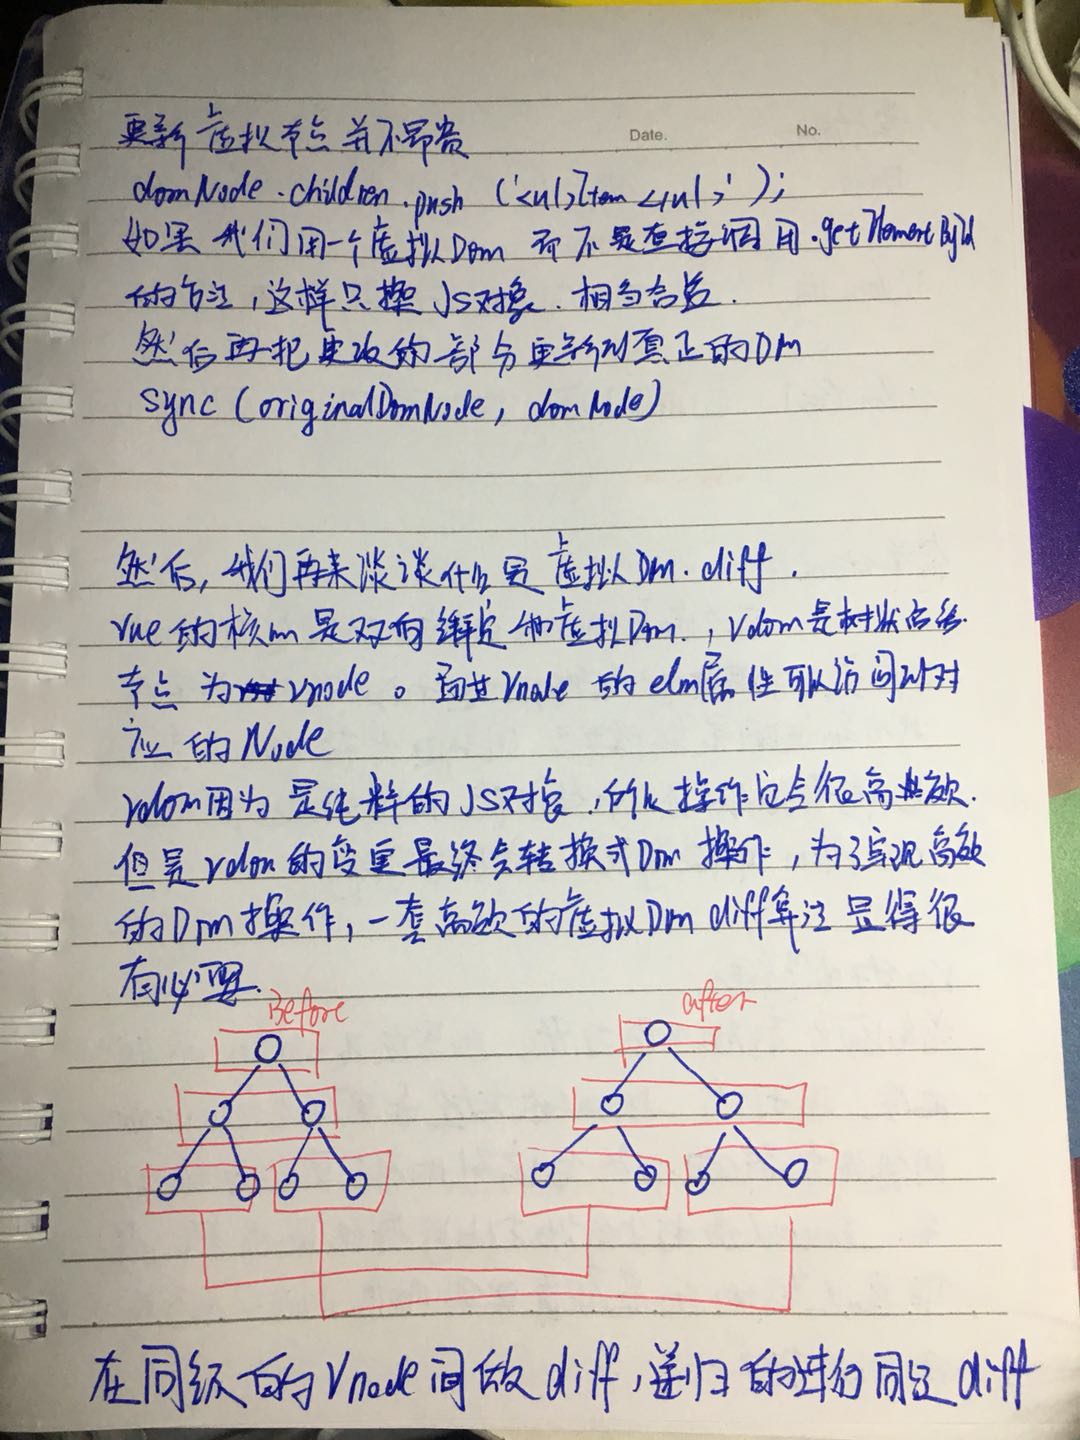 Date.
No.
更新虚拟节点并不昂贵
domNode.children.push('<ul>Item</ul>');
如果我们用一个虚拟Dom 而不是直接调用.getElementById
的方法,这样只操 JS对象.相当合适.
然后再把更改的部分更新到真正的Dom
sync(originalDomNode, domNode)
然后,我们再来谈谈什么是虚拟Dom.diff.
Vue的核心是双向绑定和虚拟Dom.,Vdom是树状结构
节点为vnode。而且Vnode的elm属性可以访问到对
应的Node
vdom因为是纯粹的JS对象,所以操作它会很高效.
但是vdom的变更最终会转换成Dom操作,为了实现高效
的Dom操作,一套高效的虚拟Dom diff算法显得很
有必要.
Before
after
在同级的Vnode间做diff,递归的进行同级diff